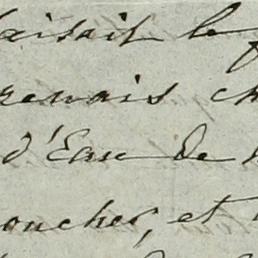 faisait le
renais ch
d'Eau de
oucher, et